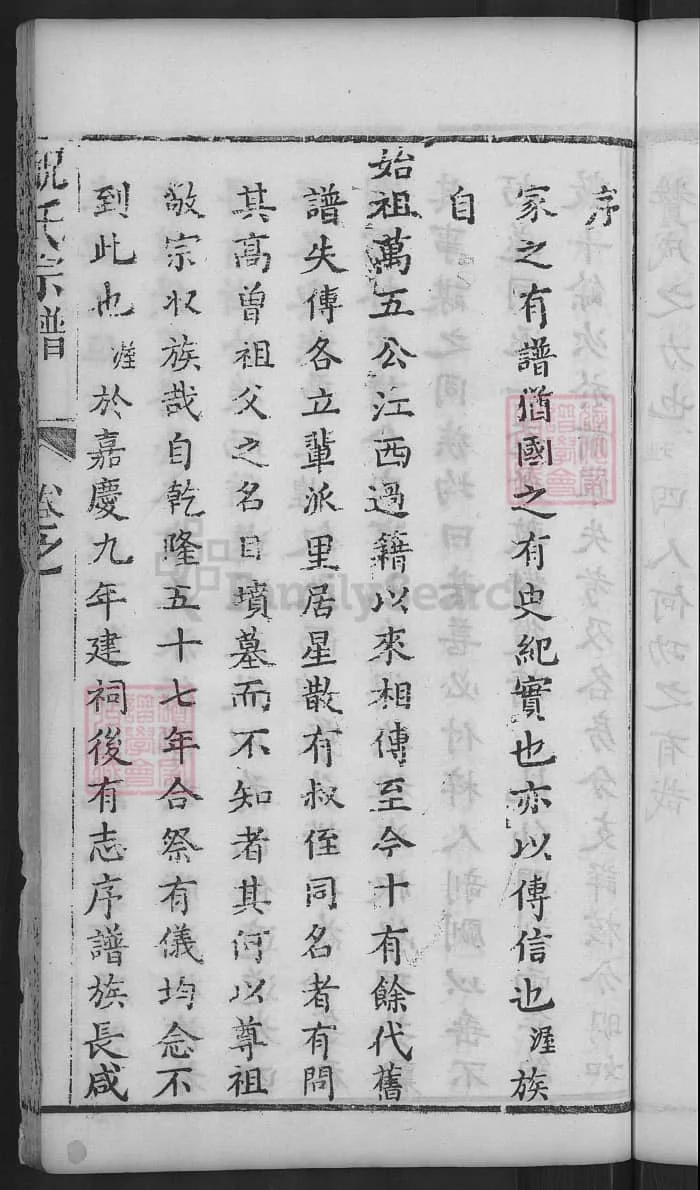 序
家之有譜猶國之有史紀實也亦以傳信也渥族
自
始祖萬五公江西過籍以來相傳至今十有餘代舊
譜失傳各立輩派里居星散有叔侄同名者有問
其高曾祖父之名目墳墓而不知者其何以尊祖
敬宗收族哉自乾隆五十七年合祭有儀均念不
到此也渥於嘉慶九年建祠後有志序譜族長咸
祝氏宗譜
卷之
FamilySearch